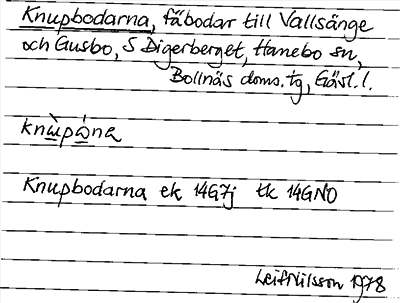 Knupbodarna, fäbodar till Vallsänge
och Gusbo, S Digerberget, Hanebo sn,
Bollnäs doms. tg, Gävl. l.
knùpána
Knupbodarna ek 14G7j tk 14GNO
Leif Nilsson 1978